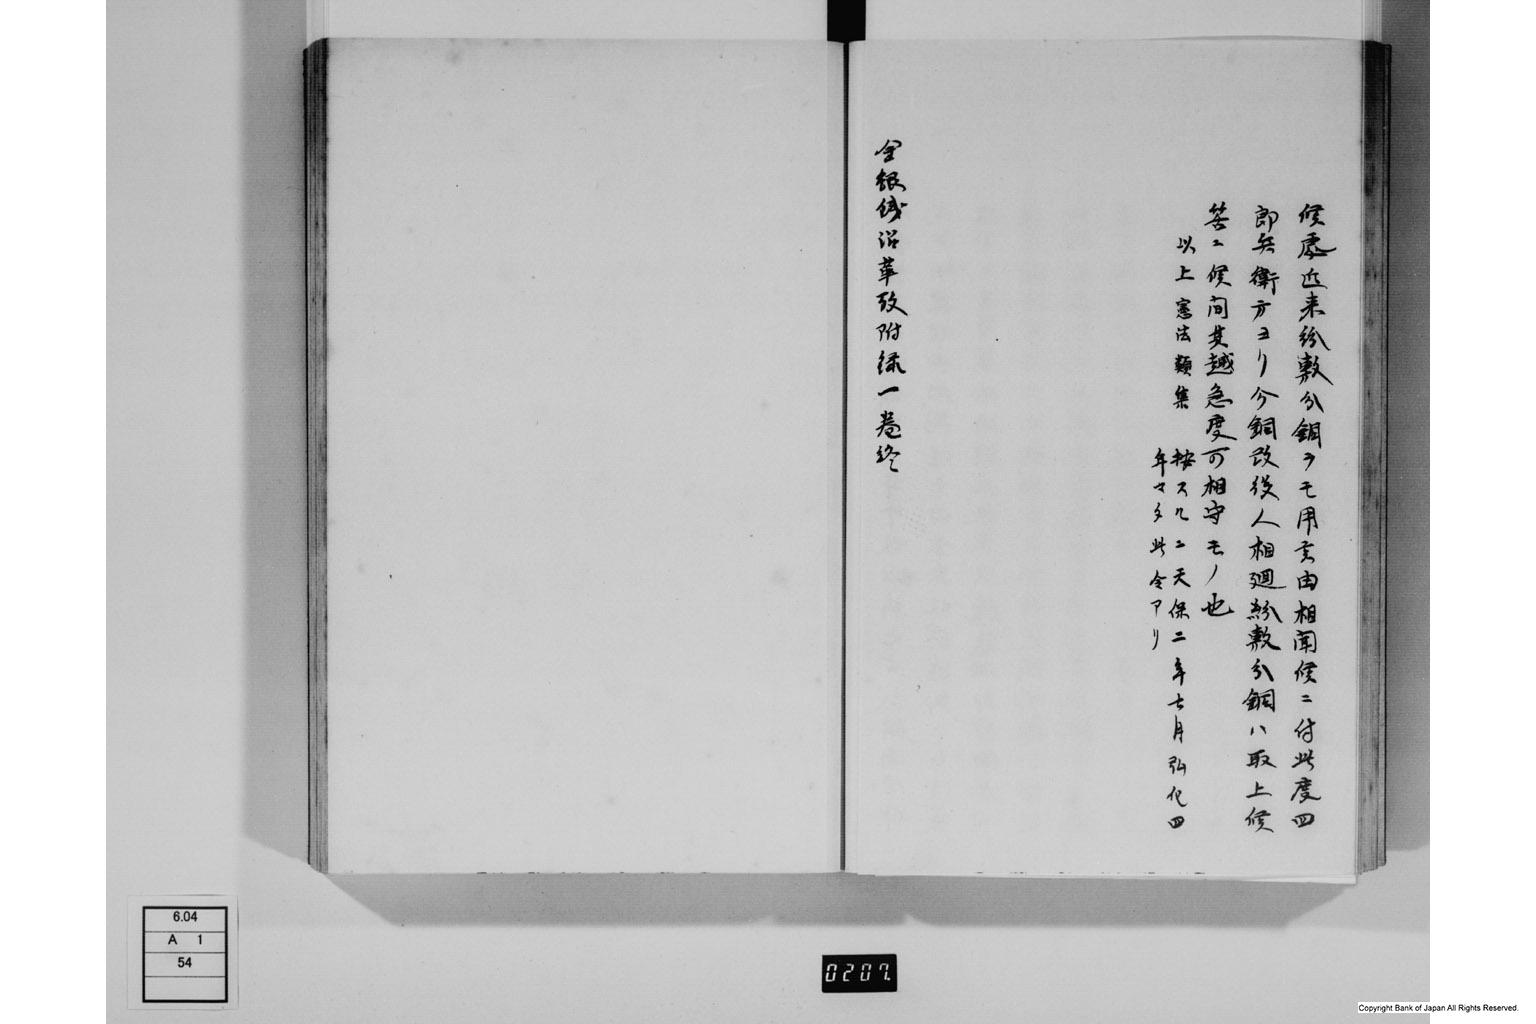 候處近来紛敷分銅ヲモ用ヒ由相聞候ニ付此度四
郎兵衛方ヨリ分銅改役人相廻紛敷分銅ハ取上候
筈ニ候間其越急度可相守モノ也
以上憲法類集
按スルニ天保二年七月弘化四
年マタ此令アリ
金銀銭沿革攷附録一巻終
6.04
A 1
54
0207.
Copyright Bank of Japan All Rights Reserved.